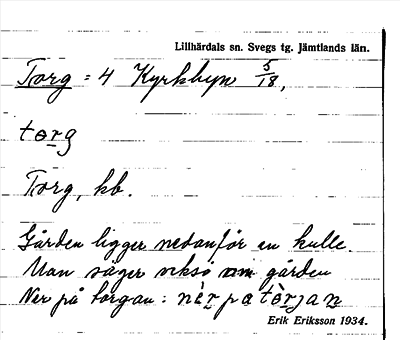 Lillhärdals sn. Svegs tg. Jämtlands län.
Torg = 4 Kyrkbyn 5/18,
torg
Torg, kb.
Gården ligger nedanför en kulle.
Man säger också om gården
Ner på torgan: nèr pa tòrjan
Erik Eriksson 1934.